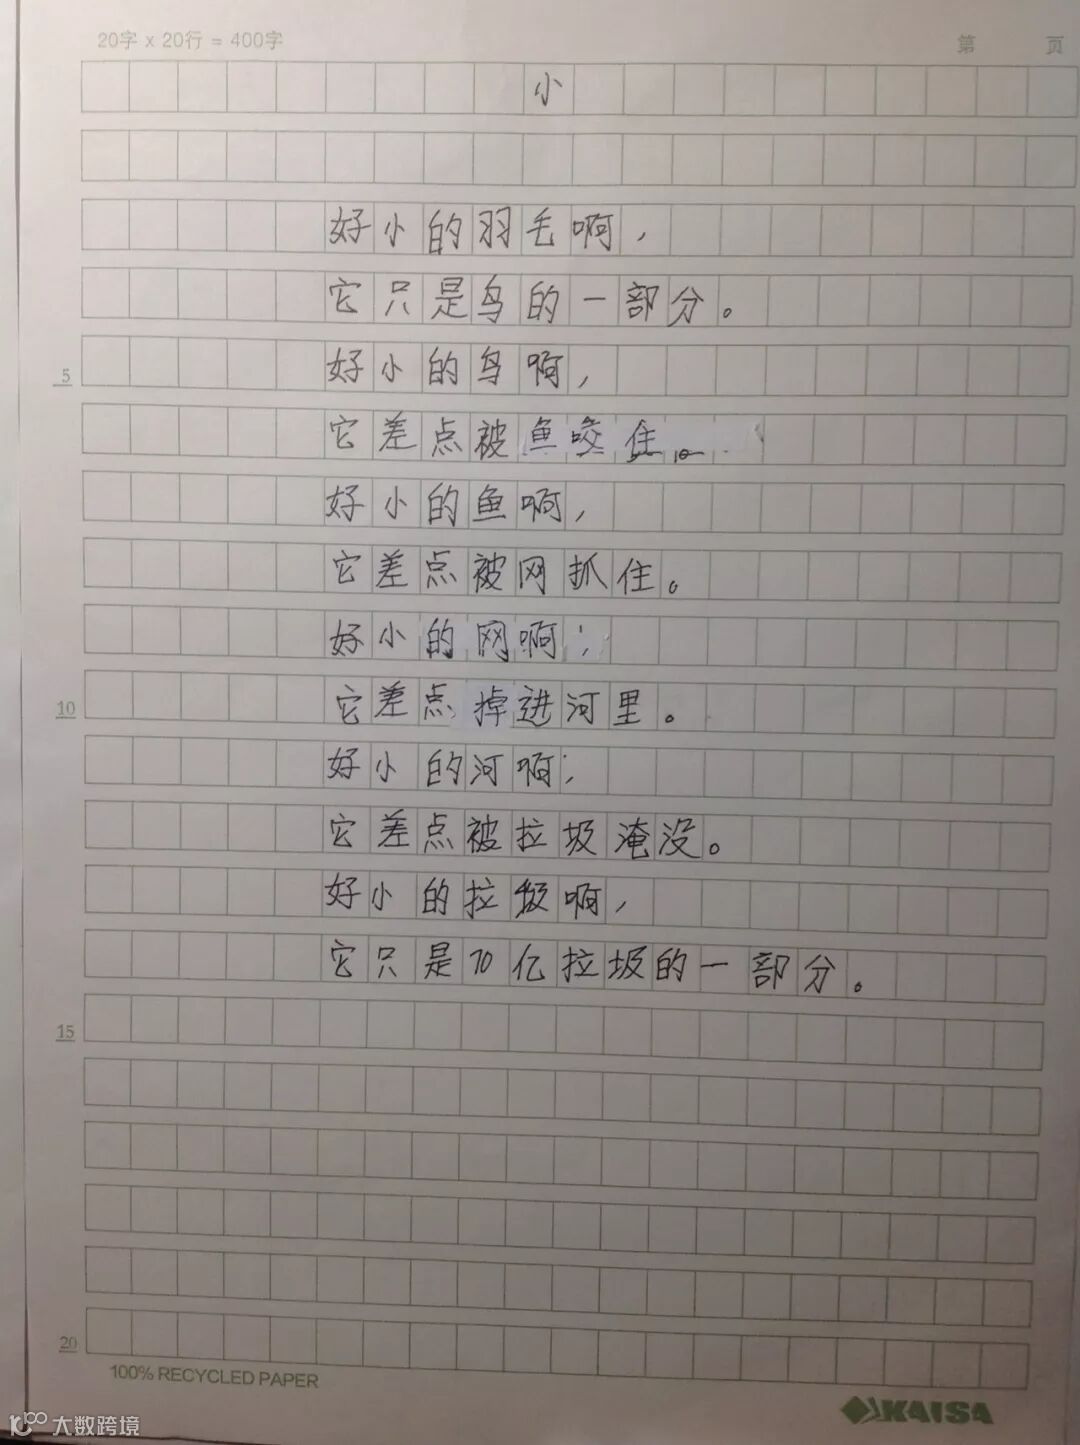 20字 x 20行 = 400字
第 页
小
好小的羽毛啊，
它只是鸟的一部分。
好小的鸟啊，
5
它差点被鱼咬住。
好小的鱼啊，
它差点被网抓住。
好小的网啊，
它差点掉进河里。
10
好小的河啊，
它差点被垃圾淹没。
好小的垃圾啊，
它只是70亿垃圾的一部分。
15
20
100% RECYCLED PAPER
KAISA
大数跨境